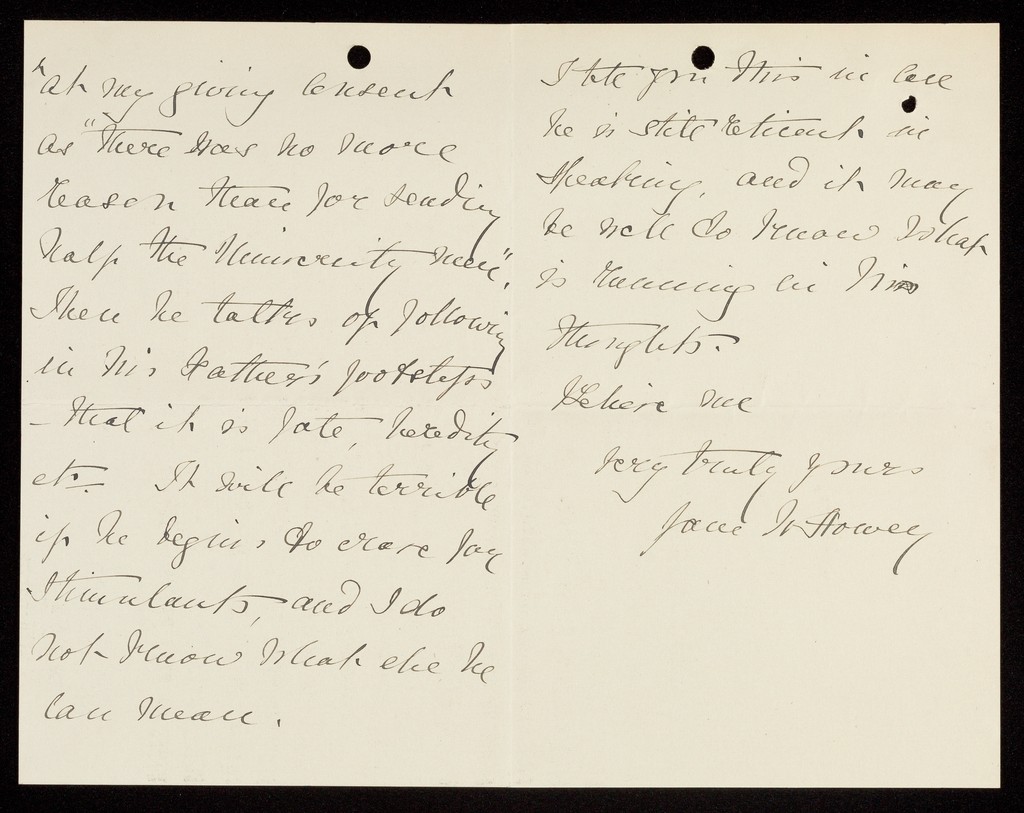 "at my giving consent
as "there was no more
reason than for sending
half the University men".
Then he talks of following
in his Father's footsteps
- that it is fate, heredity
etc. It will be terrible
if he begins to crave for
stimulants, and I do
not know what else he
can mean.
I tell you this in case
he is still reticent in
speaking, and it may
be well to know what
is running in his
thoughts.
Believe me
very truly yours
Jane